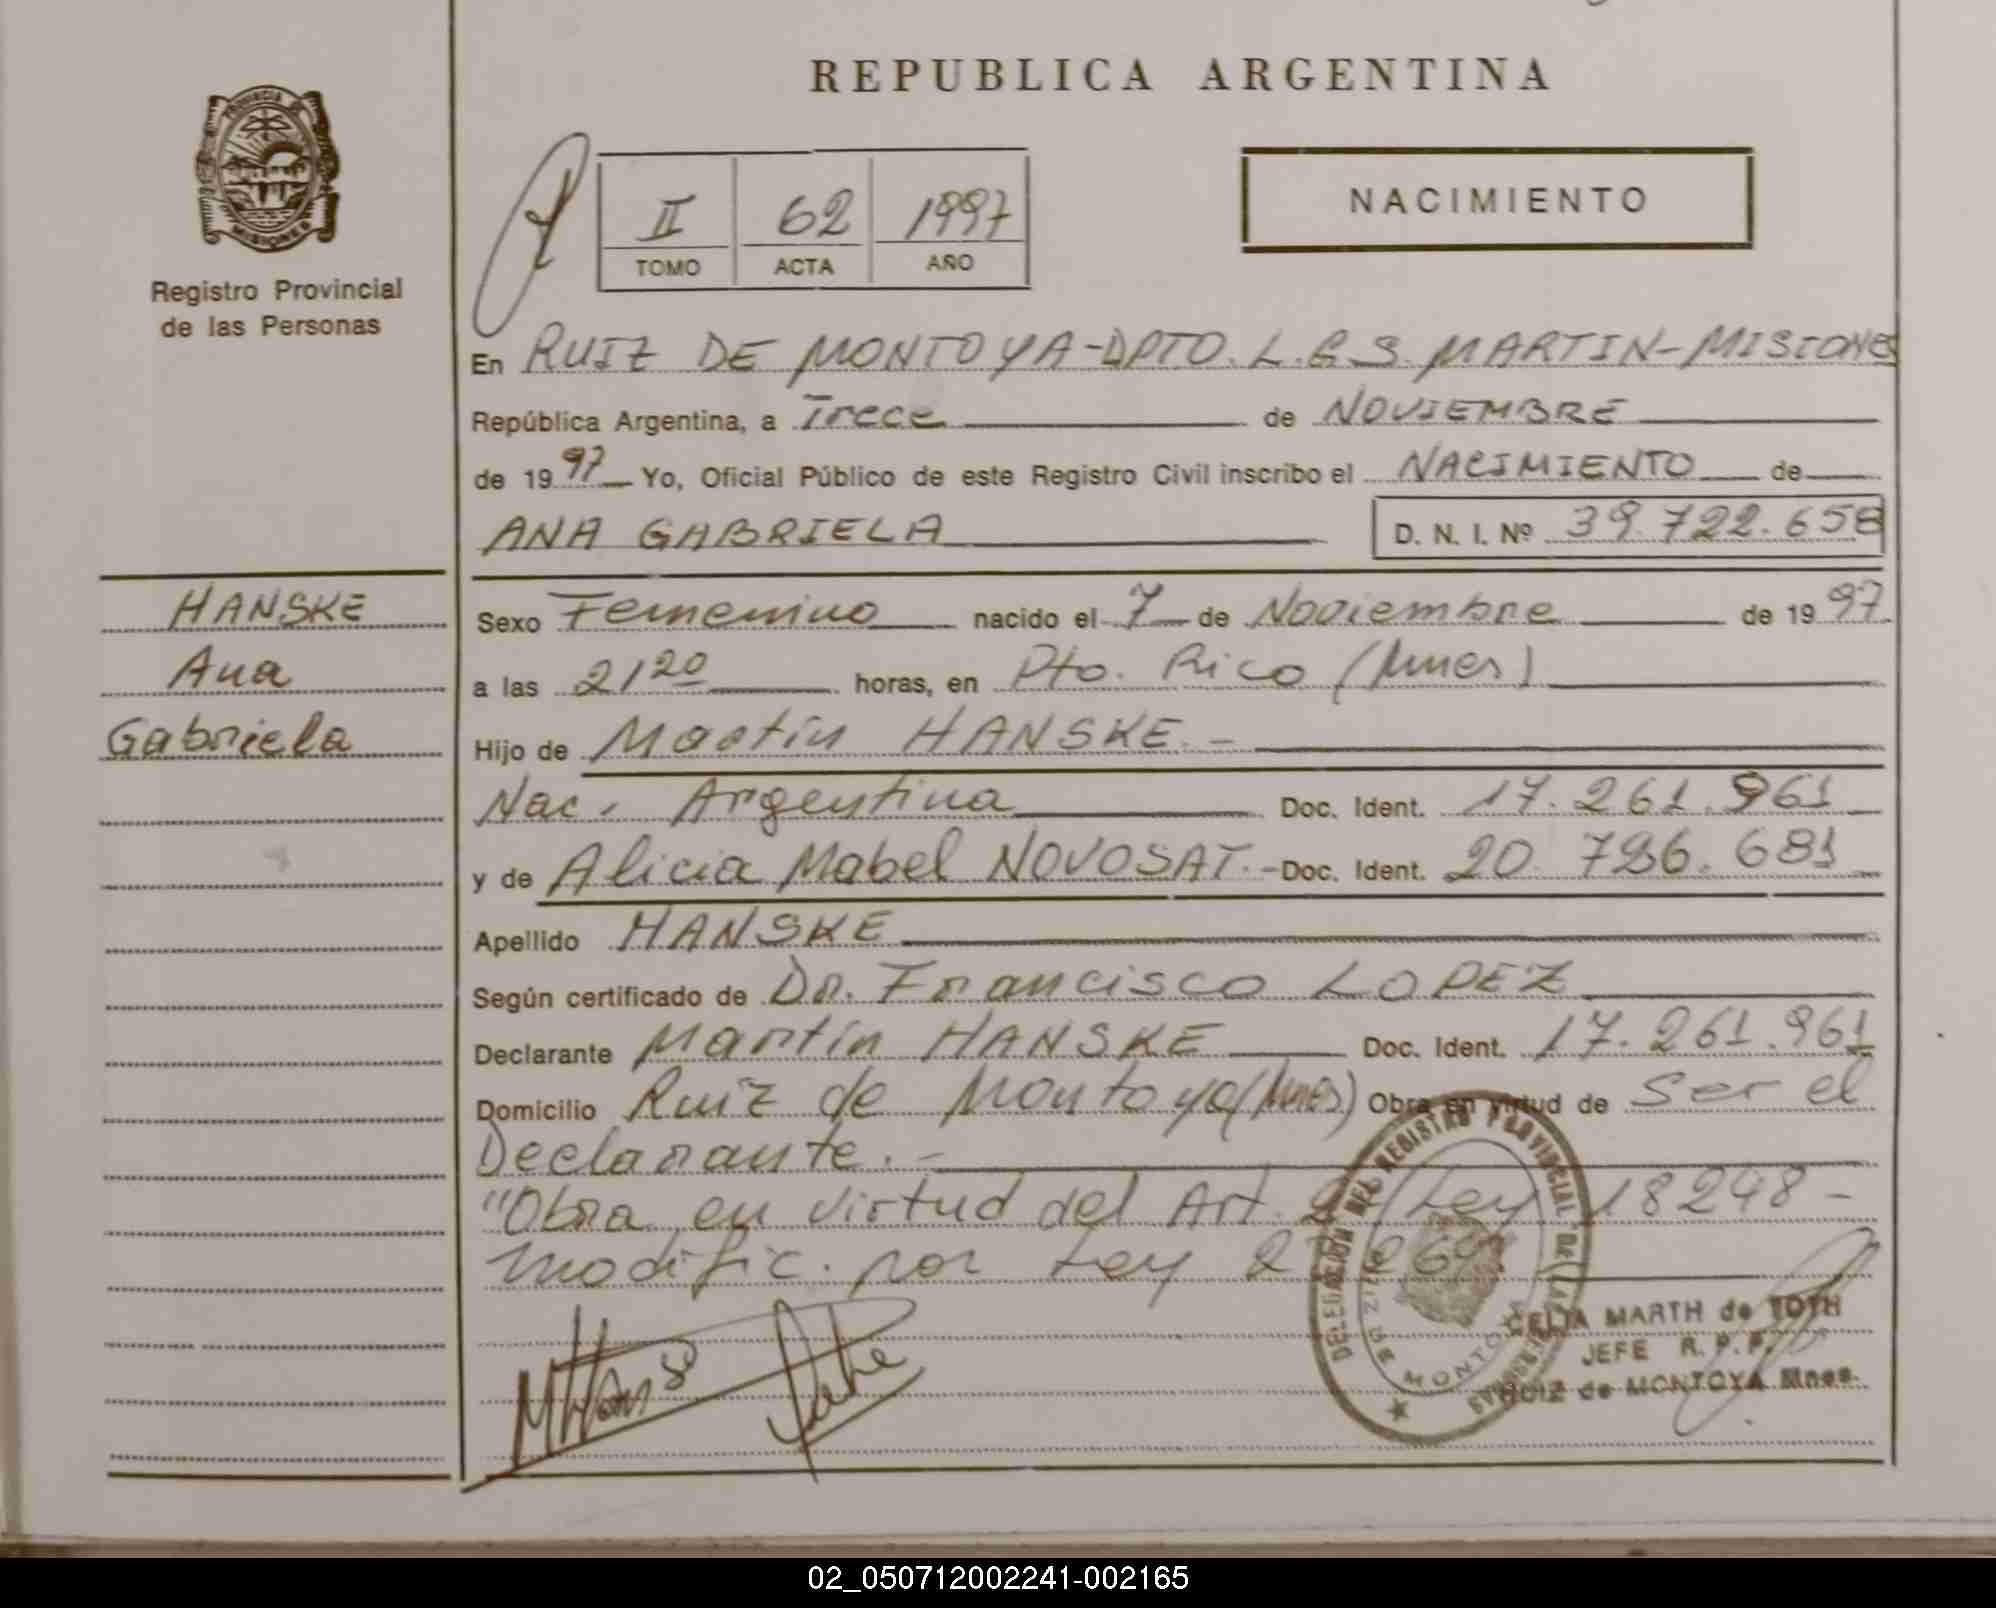 REPUBLICA ARGENTINA
PROVINCIA DE
MISIONES
Registro Provincial
de las Personas
II 62 1997
TOMO ACTA AÑO
NACIMIENTO
En RUIZ DE MONTOYA-DPTO. L.G.S. MARTIN-MISIONES
República Argentina, a Trece de NOVIEMBRE
de 1997 Yo, Oficial Público de este Registro Civil inscribo el NACIMIENTO de
ANA GABRIELA D. N. I. Nº 39.722.658
HANSKE
Ana
Gabriela
Sexo Femenino nacido el 7 de Noviembre de 1997.
a las 21 20 horas, en Pto. Rico (Mnes)
Hijo de Martín HANSKE.-
Nac. Argentina Doc. Ident. 17.261.961
y de Alicia Mabel NOVOSAT.- Doc. Ident. 20.786.681
Apellido HANSKE
Según certificado de Dr. Francisco LOPEZ
Declarante Martín HANSKE Doc. Ident. 17.261.961
Domicilio Ruiz de Montoya (Mnes) Obra en virtud de Ser el
Declarante.-
"Obra en virtud del Art. Ley 18248-
modific. por Ley
DELEGACION DEL REGISTRO PROVINCIAL DE LAS PERSONAS
RUIZ DE MONTOYA
CELIA MARTH de TOTH
JEFE R. P. P.
RUIZ de MONTOYA Mnes.
02_050712002241-002165